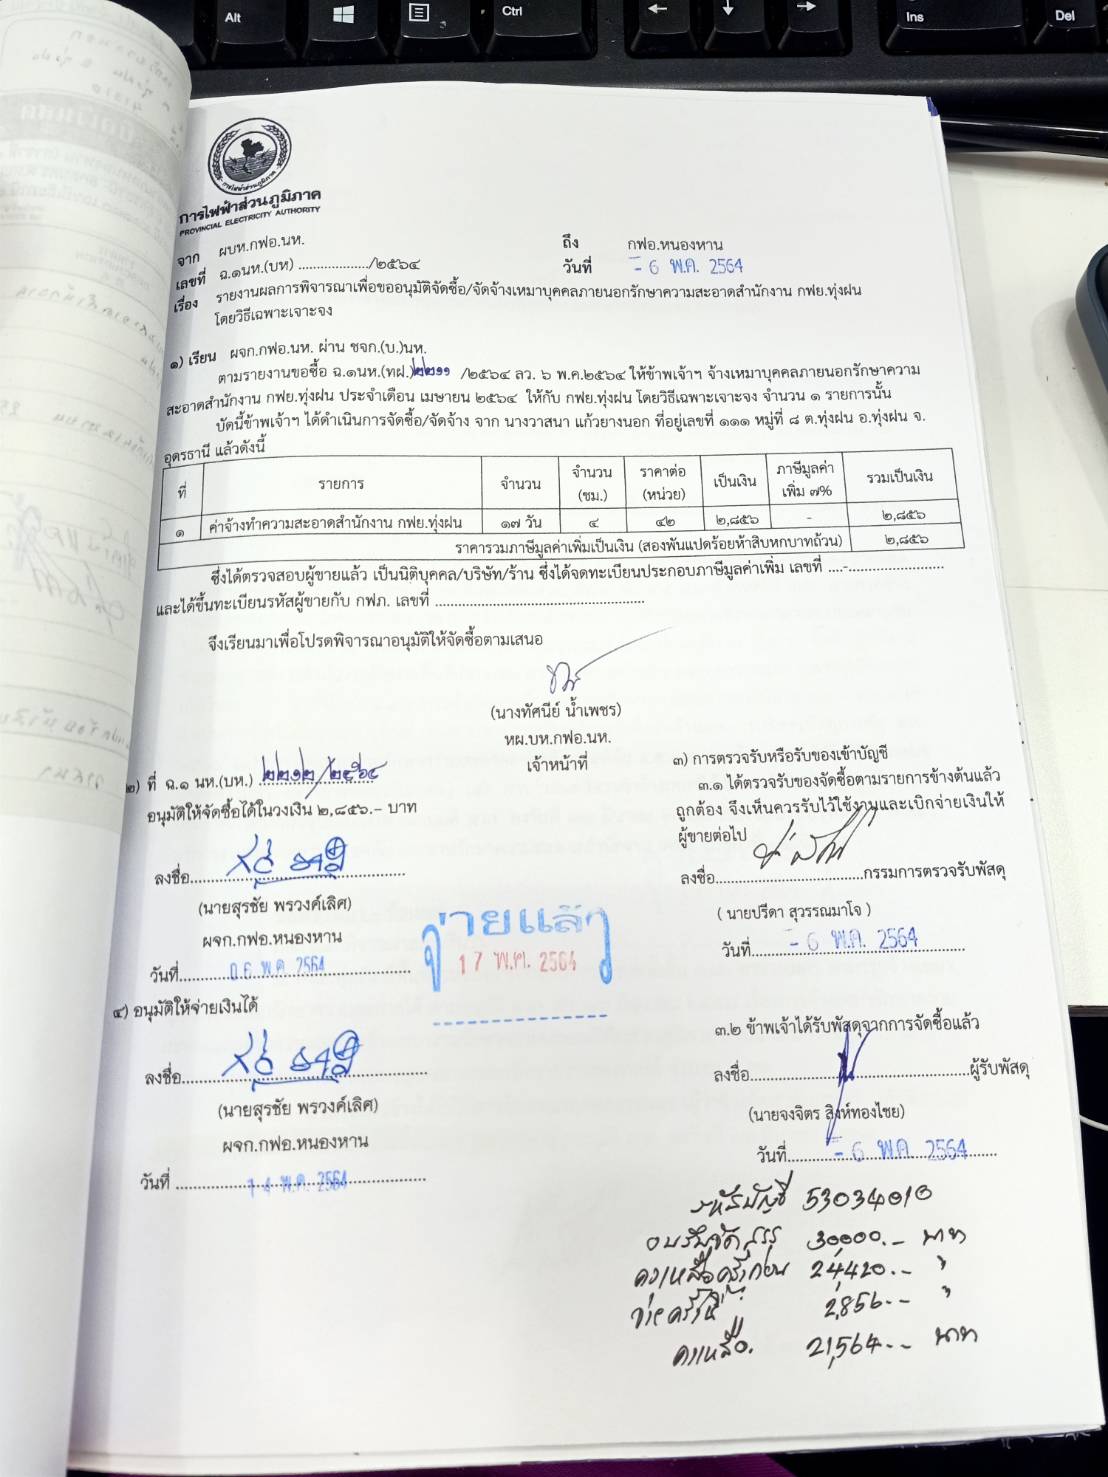 Alt
Ctrl
Ins
Del
การไฟฟ้าส่วนภูมิภาค
PROVINCIAL ELECTRICITY AUTHORITY
จาก ผบห.กฟอ.นห. ถึง กฟอ.หนองหาน
เลขที่ ฉ.๑นห.(บห) ..................../๒๕๖๔ วันที่ - 6 พ.ค. 2564
เรื่อง รายงานผลการพิจารณาเพื่อขออนุมัติจัดซื้อ/จัดจ้างเหมาบุคคลภายนอกรักษาความสะอาดสำนักงาน กฟย.ทุ่งฝน
โดยวิธีเฉพาะเจาะจง
๑) เรียน ผจก.กฟอ.นห. ผ่าน ชจก.(บ.)นห.
ตามรายงานขอซื้อ ฉ.๑นห.(ทฝ.)๒๒๑๑ /๒๕๖๔ ลว. ๖ พ.ค.๒๕๖๔ ให้ข้าพเจ้าฯ จ้างเหมาบุคคลภายนอกรักษาความ
สะอาดสำนักงาน กฟย.ทุ่งฝน ประจำเดือน เมษายน ๒๕๖๔ ให้กับ กฟย.ทุ่งฝน โดยวิธีเฉพาะเจาะจง จำนวน ๑ รายการนั้น
บัดนี้ข้าพเจ้าฯ ได้ดำเนินการจัดซื้อ/จัดจ้าง จาก นางวาสนา แก้วยางนอก ที่อยู่เลขที่ ๑๑๑ หมู่ที่ ๘ ต.ทุ่งฝน อ.ทุ่งฝน จ.
อุดรธานี แล้วดังนี้
ที่ รายการ จำนวน จำนวน (ชม.) ราคาต่อ (หน่วย) เป็นเงิน ภาษีมูลค่า เพิ่ม ๗% รวมเป็นเงิน
๑ ค่าจ้างทำความสะอาดสำนักงาน กฟย.ทุ่งฝน ๑๗ วัน ๔ ๔๒ ๒,๘๕๖ - ๒,๘๕๖
ราคารวมภาษีมูลค่าเพิ่มเป็นเงิน (สองพันแปดร้อยห้าสิบหกบาทถ้วน) ๒,๘๕๖
ซึ่งได้ตรวจสอบผู้ขายแล้ว เป็นนิติบุคคล/บริษัท/ร้าน ซึ่งได้จดทะเบียนประกอบภาษีมูลค่าเพิ่ม เลขที่ ....-........................
และได้ขึ้นทะเบียนรหัสผู้ขายกับ กฟภ. เลขที่ ....................................................
จึงเรียนมาเพื่อโปรดพิจารณาอนุมัติให้จัดซื้อตามเสนอ
(นางทัศนีย์ น้ำเพชร)
หผ.บห.กฟอ.นห.
เจ้าหน้าที่
๒) ที่ ฉ.๑ นห.(บห.) ๒๒๑๒/๒๕๖๔
อนุมัติให้จัดซื้อได้ในวงเงิน ๒,๘๕๖.- บาท
ลงชื่อ
(นายสุรชัย พรวงค์เลิศ)
ผจก.กฟอ.หนองหาน
วันที่ 06 พ.ค. 2564
๓) การตรวจรับหรือรับของเข้าบัญชี
๓.๑ ได้ตรวจรับของจัดซื้อตามรายการข้างต้นแล้ว
ถูกต้อง จึงเห็นควรรับไว้ใช้งานและเบิกจ่ายเงินให้
ผู้ขายต่อไป
ลงชื่อ กรรมการตรวจรับพัสดุ
( นายปรีดา สุวรรณมาโจ )
วันที่ - 6 พ.ค. 2564
จ่ายแล้ว
17 พ.ค. 2564
๔) อนุมัติให้จ่ายเงินได้
ลงชื่อ
(นายสุรชัย พรวงค์เลิศ)
ผจก.กฟอ.หนองหาน
วันที่ 14 พ.ค. 2564
๓.๒ ข้าพเจ้าได้รับพัสดุจากการจัดซื้อแล้ว
ลงชื่อ ผู้รับพัสดุ
(นายจงจิตร สิงห์ทองไชย)
วันที่ - 6 พ.ค. 2564
รหัสบัญชี 53034010
งบรับจัดสรร 30000.- บาท
คงเหลือครั้งก่อน 24,420.- "
จ่ายครั้งนี้ 2,856.- "
คงเหลือ. 21,564.- บาท